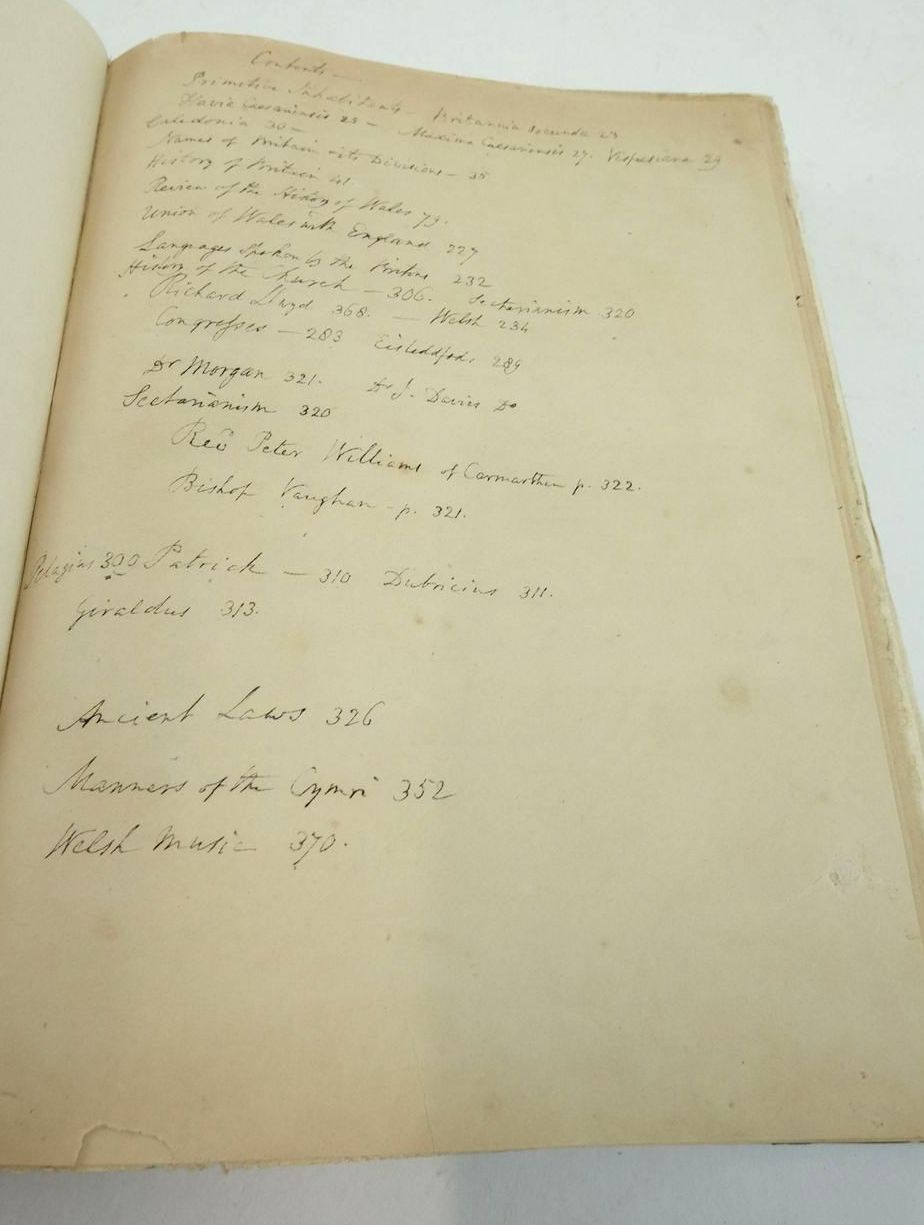 Contents —
Primitive Inhabitants — Britannia Secunda 23
Flavia Caesariensis 25 — Maxima Caesariensis 27. Vespasiana 29
Caledonia 30 —
Names of Britain & its Divisions — 35
History of Britain 41.
Review of the History of Wales 73.
Union of Wales with England 227
Languages Spoken by the Britons 232
History of the Church — 306. Sectarianism 320
Richard Llwyd 368. — Welsh 234
Congresses — 283 Eisteddfods 289
Dr Morgan 321. Dr J. Davies Do
Sectarianism 320
Revd Peter Williams of Carmarthen p. 322.
Bishop Vaughan - p. 321.
Pelagius 300 Patrick — 310 Dubricius 311.
Giraldus 313.
Ancient Laws 326
Manners of the Cymri 352
Welsh Music 370.